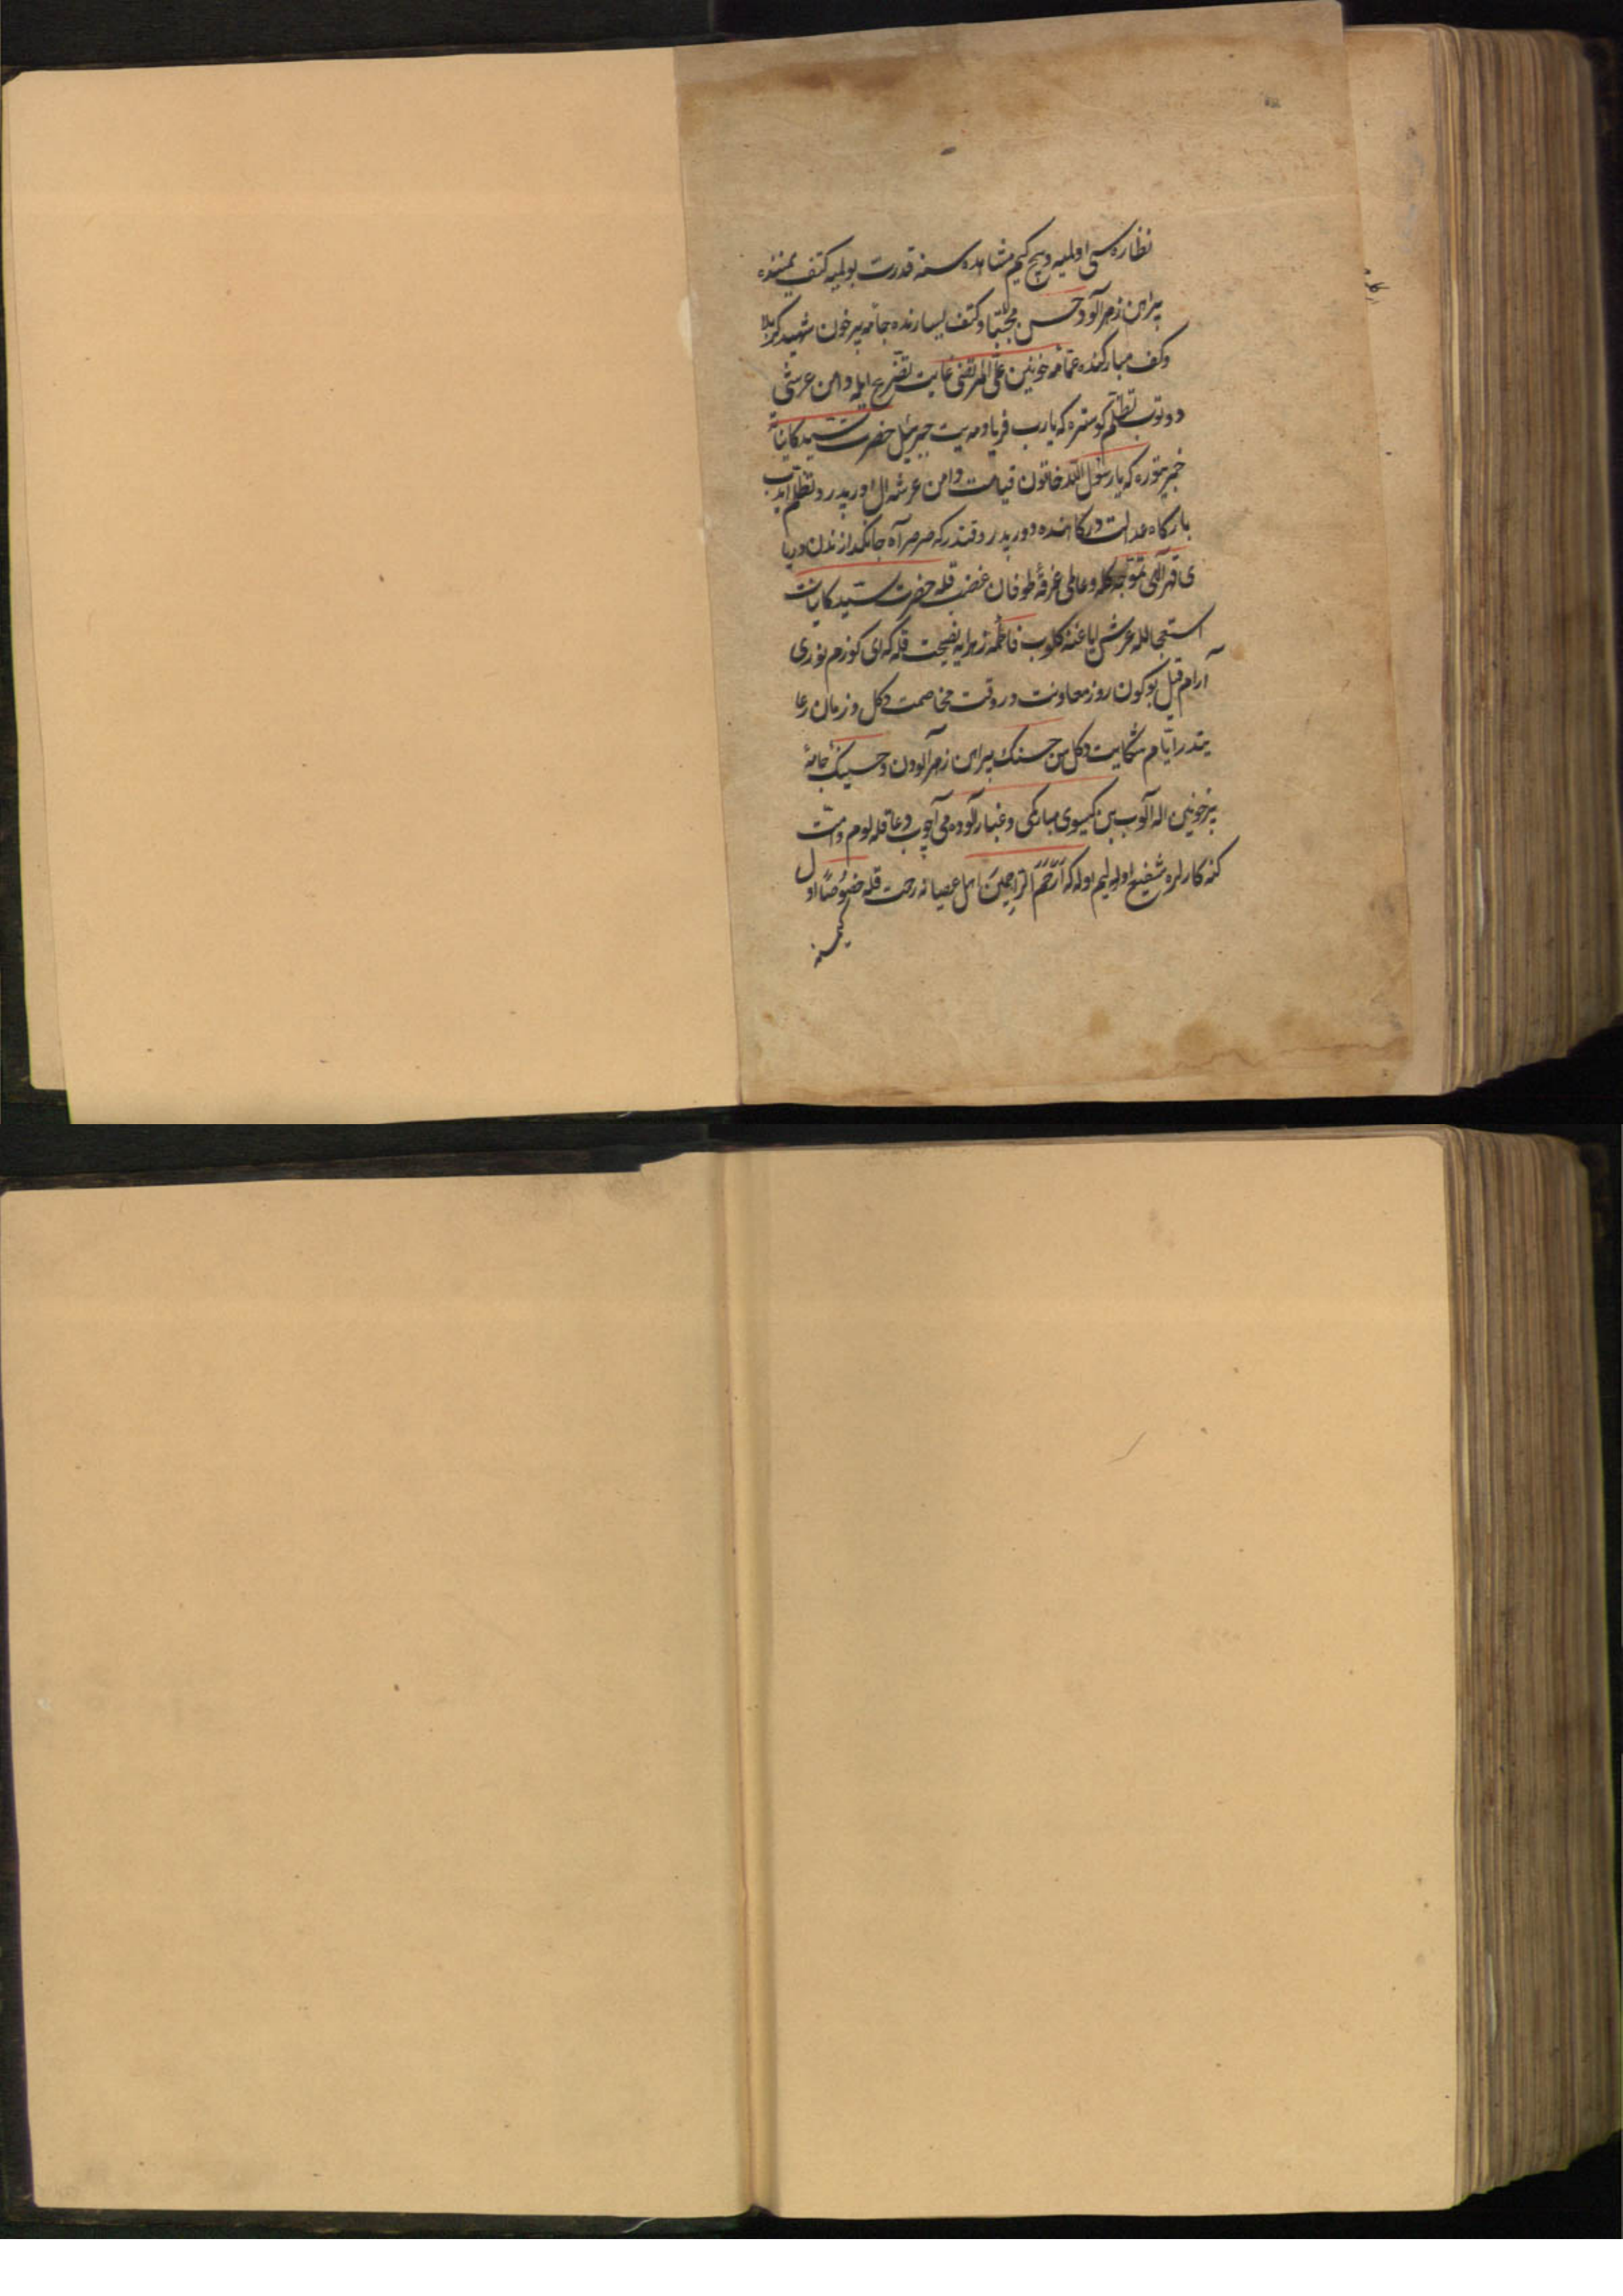 نظاره سی اولمیه و هیچ کیم مشاهده سنه قدرت بولمیه کتف یمیننده
پیراهن زهرآلود حسن مجتبا و کتف یسارنده جامه پرخون شهید کربلا
و کف مبارکنده عمّامه خونین علی المرتضی غایت تضرّع ایله دامن عرشی
دوتوب تظلّم کوستره که یارب فریادمه یت جبرئیل حضرت سیّد کایناته
خبر یتوره که یا رسول الله خاتون قیامت دامن عرشه ال اوریپدر و تظلّم ایدب
بارکاه عدالت درکاهنده دوریپدر وقتدر که صرصر آه جانکدازندن دریا
ی قهر آلهی تموّجه کله و عالمی غرقهٔ طوفان غضب قله حضرت سیّد کاینات
استعجالله عرش ایاغنه کلوب فاطمه زهرایه نصیحت قله که ای کوزم نوری
آرام قیل بو کون روز معاونت در وقت مخاصمت دکل و زمان رعا
یتدر ایّام شکایت دکل سن حسنک پیراهن زهرآلودن و حسینک جامهٔ
پرخونین اله آلوب بن کیسوی مبارکمی و غبارآلوده می آچوب دعا قله لوم و امّت
کنه کارلره شفیع اوله لیم اوله که ارحم الراحمین اهل عصیانه رحمت قله خصوصًا اول
کیمسنه